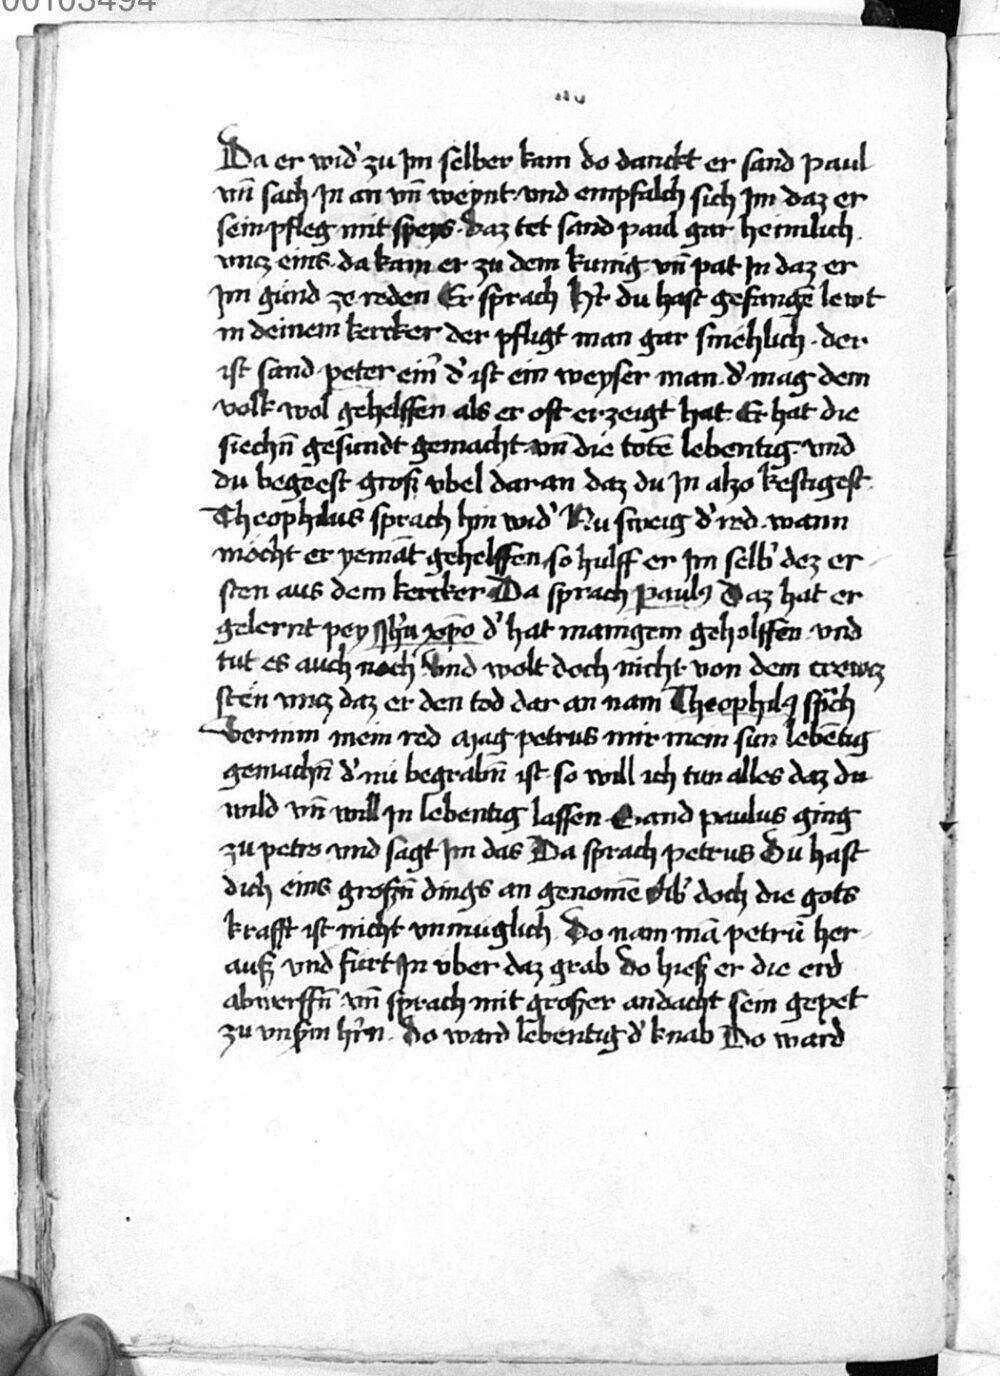 00103494
Da er wid' zu Im selber kam do danckt er sand paul
vn̄ sach In an vn̄ weynt · vnd empfalch sich Im daz er
sein pfleg mit speys · daz tet sand paul gar heimlich
vncz eins · da kam er zu dem kunig vn̄ pat In daz er
Im gund ze reden Er sprach H'r du hast gefangē lewt
in deinem kercker der pfligt man gar smehlich · der
ist sand peter ein' d' ist ein weyser man · d' mag dem
volk wol gehelffen als er oft erzeigt hat Er hat die
siechn̄ gesundt gemacht · vn̄ die totē lebentig · vnd
du begeest groß vbel daran daz du In also kestigest
Theophilus sprach hin wid' Nu sweig d' red · wann
mocht er yemāt gehelffen so hulff er Im selb' dez er
sten aus dem kercker Da sprach paulꝰ Daz hat er
gelernt pey Jh'u xp̄o d' hat manigem geholffen vnd
tut es auch noch Vnd wolt doch nicht von dem crewcz
sten vncz daz er den tod dar an nam Theophilꝰ sp̄ch
Vernim mein red Mag petrus mir mein sun lebētig
gemachn̄ d' nu begrabn̄ ist so will ich tun alles daz du
wild vn̄ will In lebentig lassen Sand paulus ging
zu petro vnd sagt Im das Da sprach petrus Du hast
dich eins großn̄ dings an genomē Ob' doch die gots
krafft ist nicht vnmuglich Do nam mā petrū her
auß vnd furt In vber daz grab do hieß er die erd
abwerffn̄ vn̄ sprach mit großer andacht sein gepet
zu vns'm h'rn · do ward lebentig d' knab Do ward